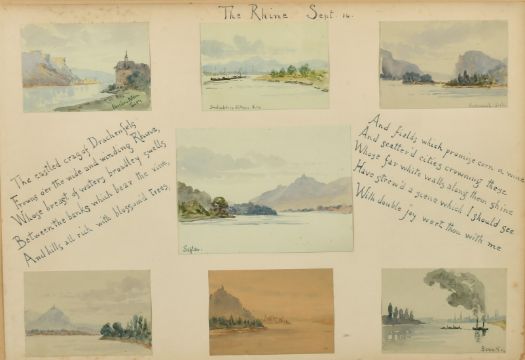 The Rhine Sept. 14.
The castled crag of Drachenfels
Frowns o'er the wide and winding Rhine,
Whose breast of waters broadly swells
Between the banks which bear the vine,
And hills all rich with blossomed trees,
And fields which promise corn & wine
And scatter'd cities crowning these
Whose far white walls along them shine
Have strew'd a scene which I should see
With double joy wert thou with me